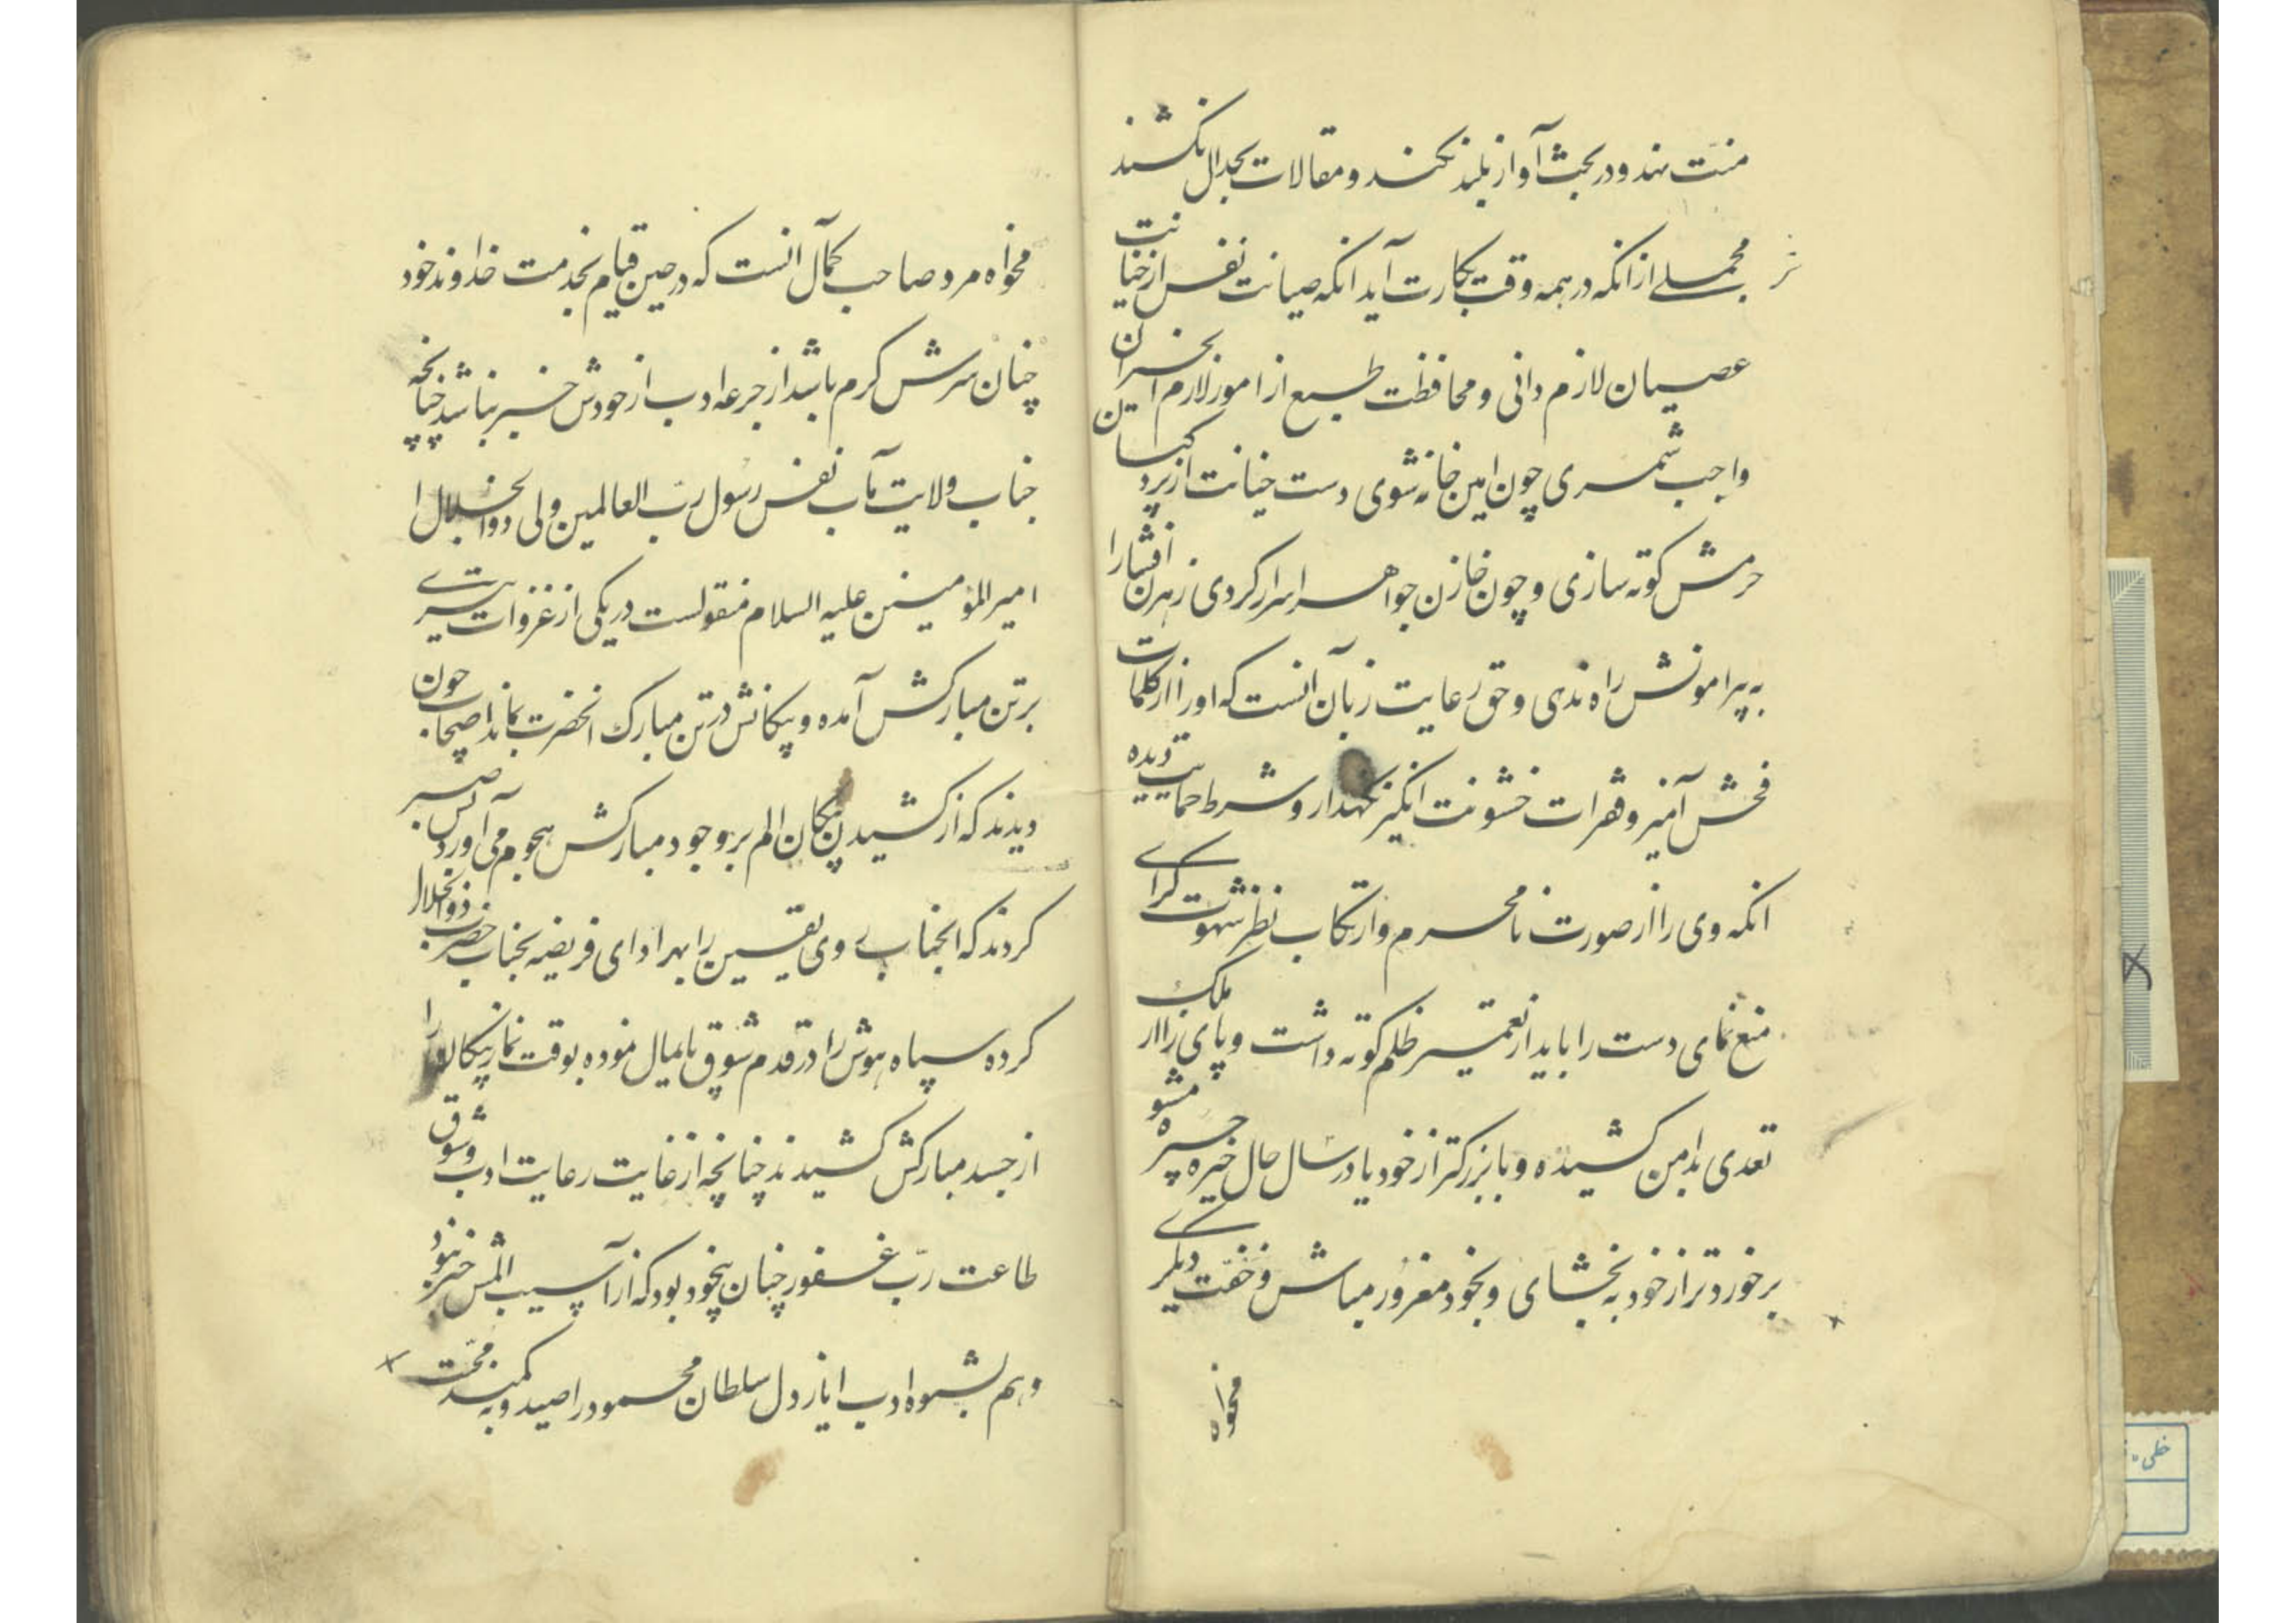 منت نهند و در بحث آواز بلند نکنند و مقالات بجدال نکشند
مجملے از انکه در همه وقت بکارت آید انکه صیانت نفس از خیانت
عصیان لازم دانی و محافظت طبع از امور لازم الخسران
واجب شمری چون امین خانه شوی دست خیانت از
حرمش کوته سازی و چون خازن جواهر اسرار کردی زهرن افشارا
به پیرامونش راه ندی و حق رعایت زبان آنست که او را از کلمات
فحش آمیز و فقرات خشونت انگیز نگهدار و شرط حمایت دیده
انکه وی را از صورت نامحرم و ارتکاب نظر شهوت گرای
منع نمای دست را باید از نعمتیر ظلم کوته داشت و پای را از ملک
تعدی بدامن کشیده و با بزرکتر از خود یا در سال حال خیره چیره مشو
بر خوردتر از خود به بخشای و بخود مغرور مباش و خفت دیگرے
مخواه
مخواه مرد صاحب کمال آنست که در حین قیام بخدمت خداوند خود
چنان سرش کرم باشد از جرعه ادب از خودش خبر نباشد چنانچه
جناب ولایت مآب نفس رسول رب العالمین ولی ذوالجلال
امیر المؤمنین علیه السلام منقولست در یکی از غزوات تیرے
بر تن مبارکش آمده و پیکانش در تن مبارک انحضرت بماند اصحاب چون
دیدند که از کشیدن پیکان الم بر وجود مبارکش هجوم می آورد پس صبر
کردند که انجناب روی یقین را بهر ادای فریضه بجناب حضرت ذوالجلال
کرده سپاه هوش را در قدم شوق پایمال نموده بوقت نماز پیکان را
از جسد مبارکش کشیدند چنانچه از غایت رعایت ادب و شوق
طاعت رب غفور چنان بیخود بود که از آسیب المش خبر نبود
و هم بشیوه ادب ایاز دل سلطان محمود را صید و به کمند محبت